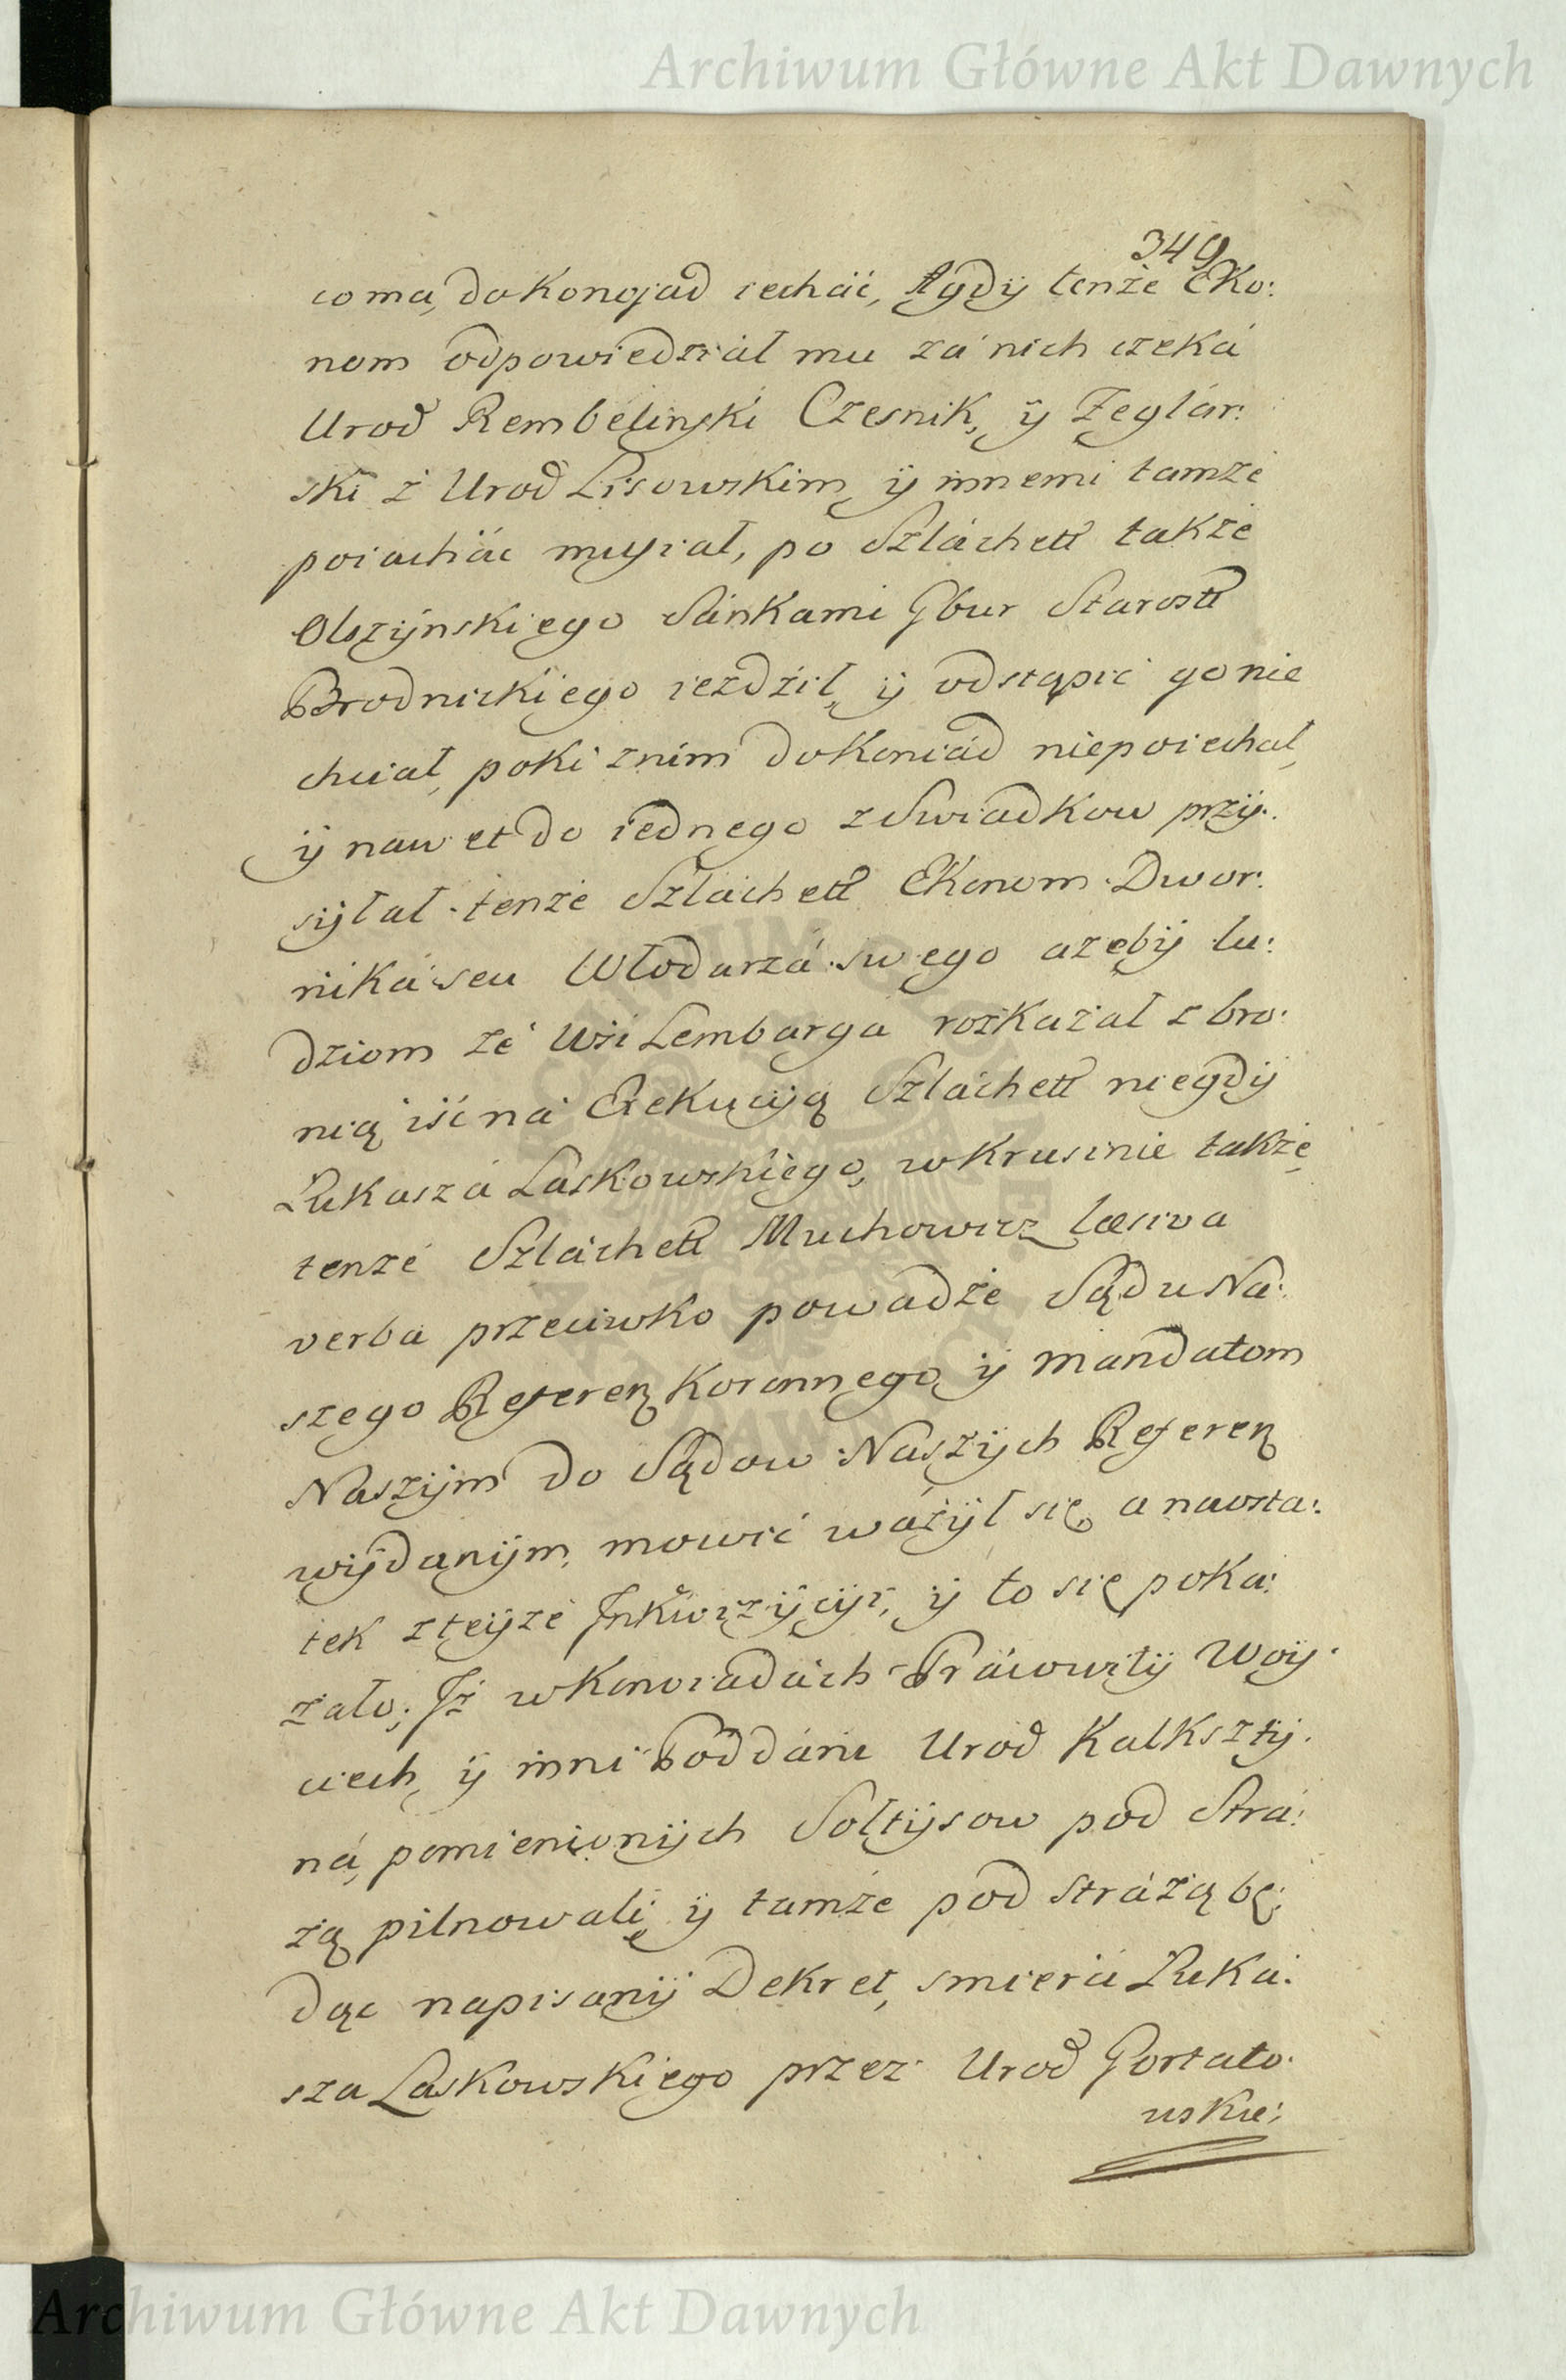 Archiwum Główne Akt Dawnych
349
co ma, do Konojad iechać, A gdÿ tenże Eko:
nom odpowiedział mu zá nich czeká
Urod Rembelinski Czesnik, ÿ Zeglár:
ski z Urod Lisowskim ÿ innemi tamże
poiachác musiał, po Szláchett także
Olszÿnskiego Sánkami Gbur Starostt
Brodnickiego ieździł, ÿ odstąpić go nie
chciał, poki znim do Koniád niepoiechał,
ÿ nawet do iednego z Swiadkow przÿ:
sÿłał tenże Szláchett Ekonom Dwor:
niká seu Włodarzá swego azebÿ lu:
dziom ze Wsi Lembarga roskazał z bro:
nią iść ná Exekucÿą Szláchett niegdÿ
Łukaszá Laskowskiego, w Krusinie także
tenże Szláchett Muchowicz læsiva
verba przeciwko powadze Sądu Na:
szego Referen Koronnego ÿ Mandatom
Naszÿm do Sądow Naszÿch Referen
wÿdanÿm, mowić wázÿł się, a naosta:
tek zteÿże Inkwizÿcÿi, ÿ to się poka:
zało; Iż w Konoiadách Prácowitÿ Woÿ:
ciech, ÿ inni Poddáni Urod Kalksztÿ:
ná, pomienionÿch Sołtÿsow pod Strá:
żą pilnowali ÿ tamże pod Stráżą bę:
dąc napisanÿ Dekret, smierci Łuká:
sza Laskowskiego przez Urod Gortato:
wskie:
Archiwum Główne Akt Dawnych